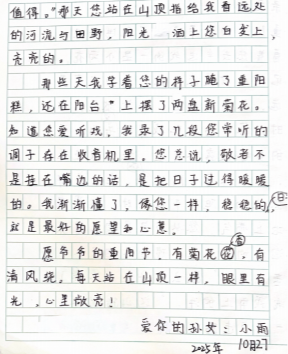 值得。"那天您站在山顶指给我看远处
的河流与田野,阳光洒上您白发上,
亮亮的。
那些天我学着您的样子腌了重阳
糕,还在阳台"上摆了两盘新菊花。
知道您爱听戏,我录了几段您常听的
调子存在收音机里。您总说,敬老不
是挂在嘴边的话,是把日子过得暖暖
的。我渐渐懂了,像您一样,稳稳的,日
就是最好的愿望和心意。
愿爷爷的重阳节,有菊花香,有
清风绕。每天站在山顶一样,眼里有
光,心里敞亮!
爱你的孙女:小雨
2025年 10月27